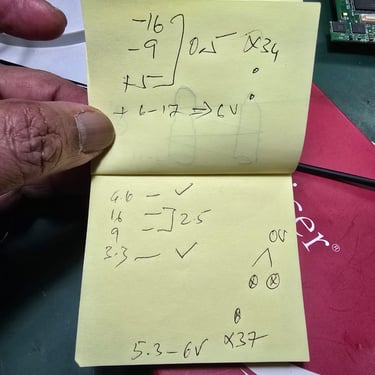 -16
-9 ] 0.5 X34
+5
+ 6-17 ⇒ 6V
4.6 — ✓
16 — ] 2.5
9 —
3.3 — ✓
0V
5.3-6V X37
cer®